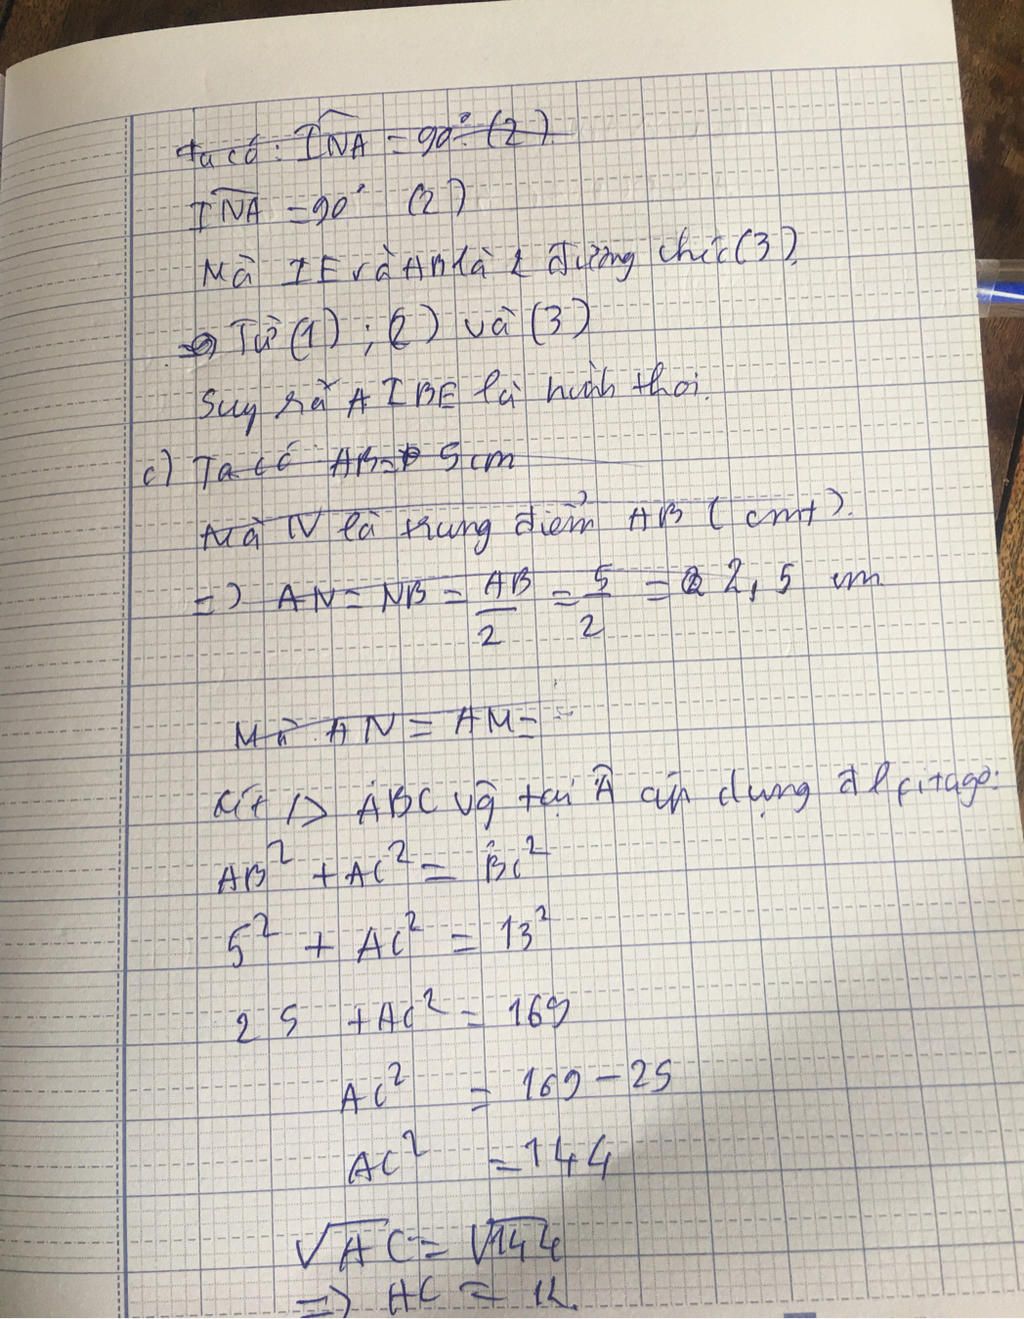 ta có: INA = 90° (2)
INA = 90° (2)
Mà IE và AB là 2 đường chéc (3).
Từ (1) ; (2) và (3)
Suy ra AIBE là hình thoi.
c) Ta có AB = 5 cm
Mà N là trung điểm AB (cmt).
=> AN = NB = AB/2 = 5/2 = 2,5 cm
Mà AN = AM =
Xét △ ABC vg tại A áp dụng đl pitago:
AB² + AC² = BC²
5² + AC² = 13²
25 + AC² = 169
AC² = 169 - 25
AC² = 144
√AC = √144
=> AC = 12.